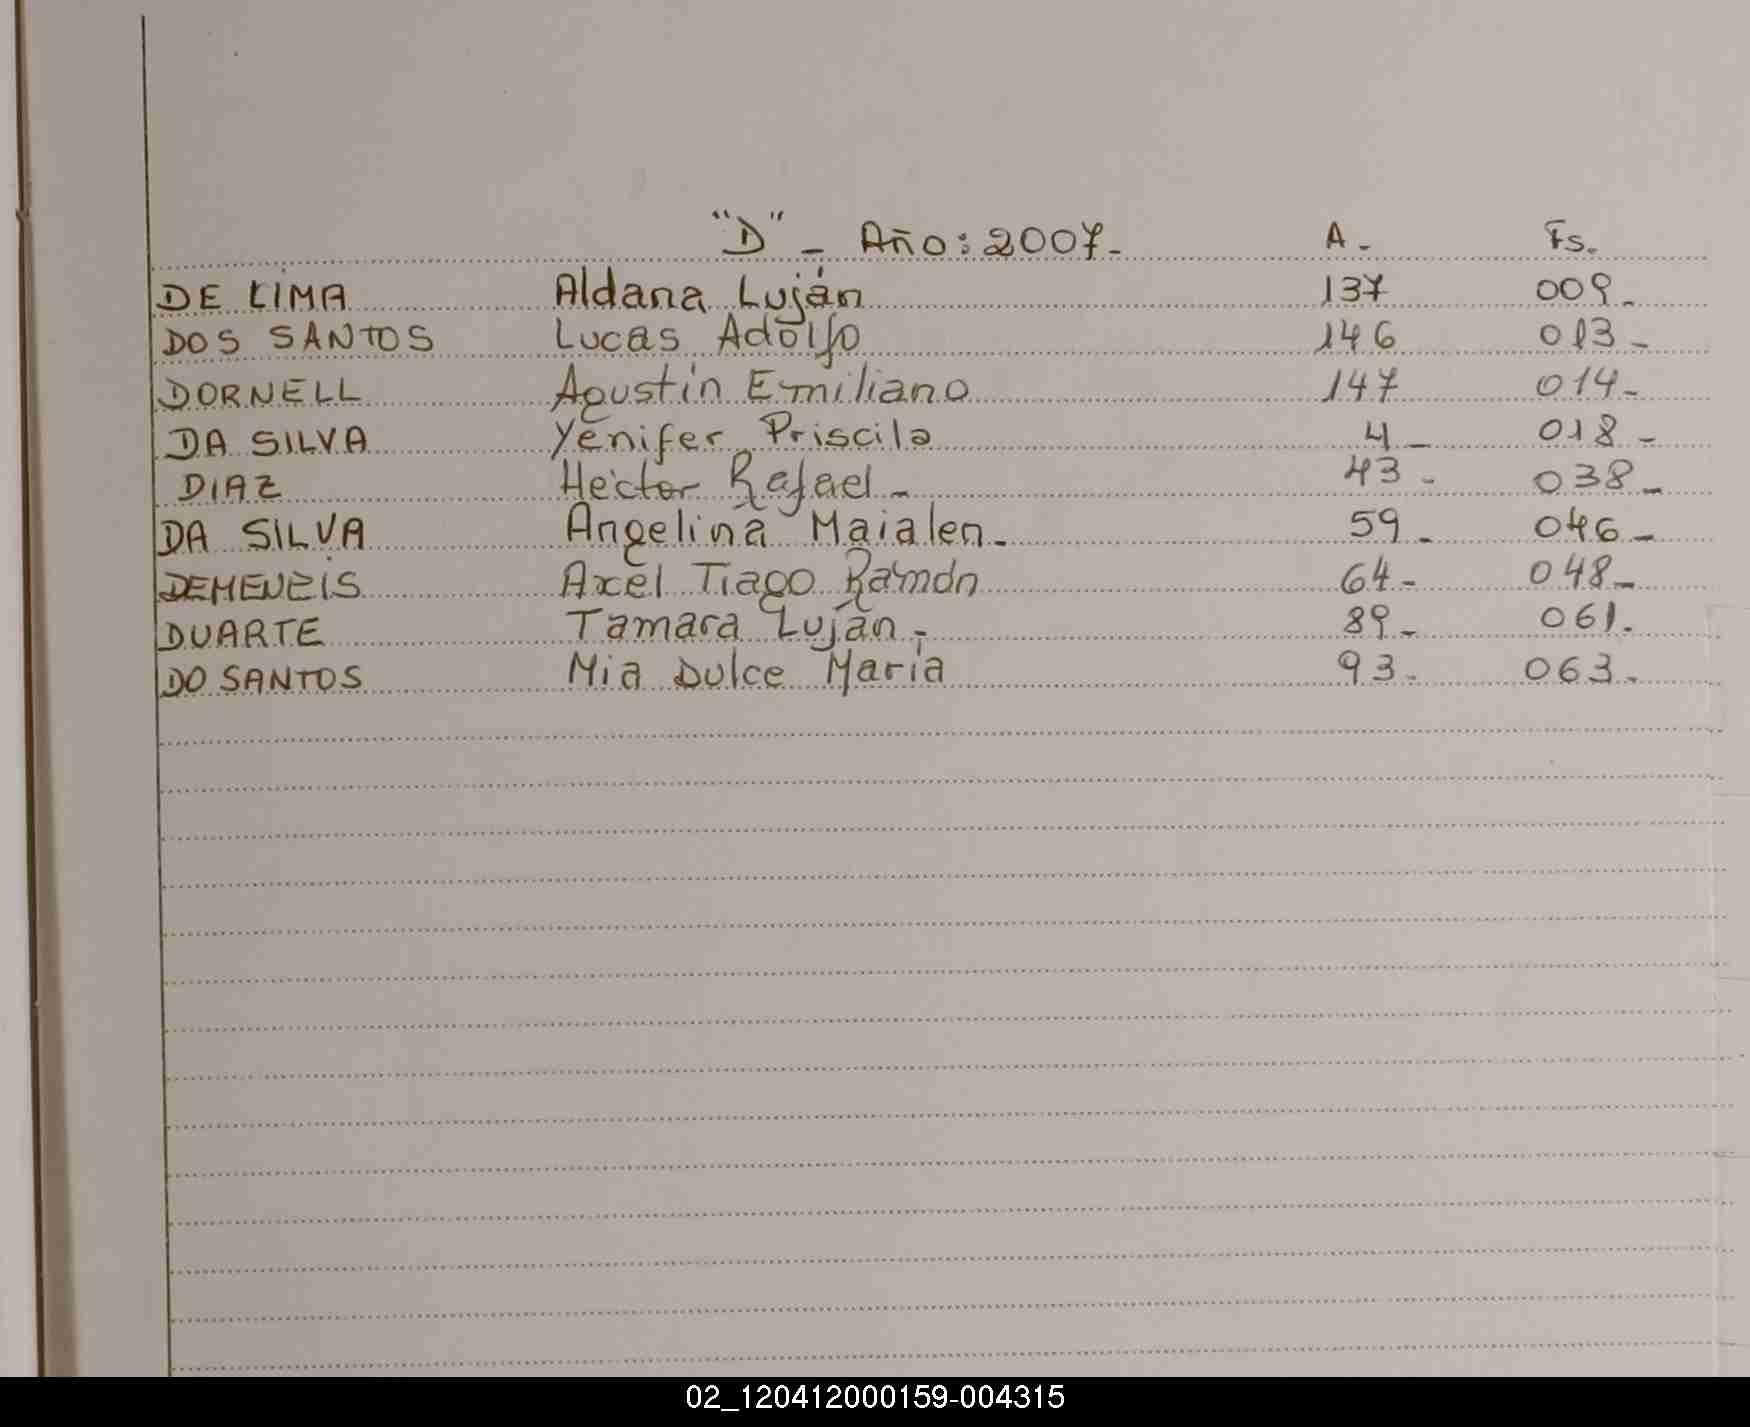 "D" - Año: 2007.- A.- Fs.
DE LIMA Aldana Luján 137 009.
DOS SANTOS Lucas Adolfo 146 013-
DORNELL Agustín Emiliano 147 014-
DA SILVA Yenifer Priscila 4- 018-
DIAZ Hector Rafael- 43- 038-
DA SILVA Angelina Maialen- 59- 046-
DEMENEIS Axel Tiago Ramón 64- 048-
DUARTE Tamara Luján.- 89- 061.
DO SANTOS Mia Dulce María 93- 063.
02_120412000159-004315